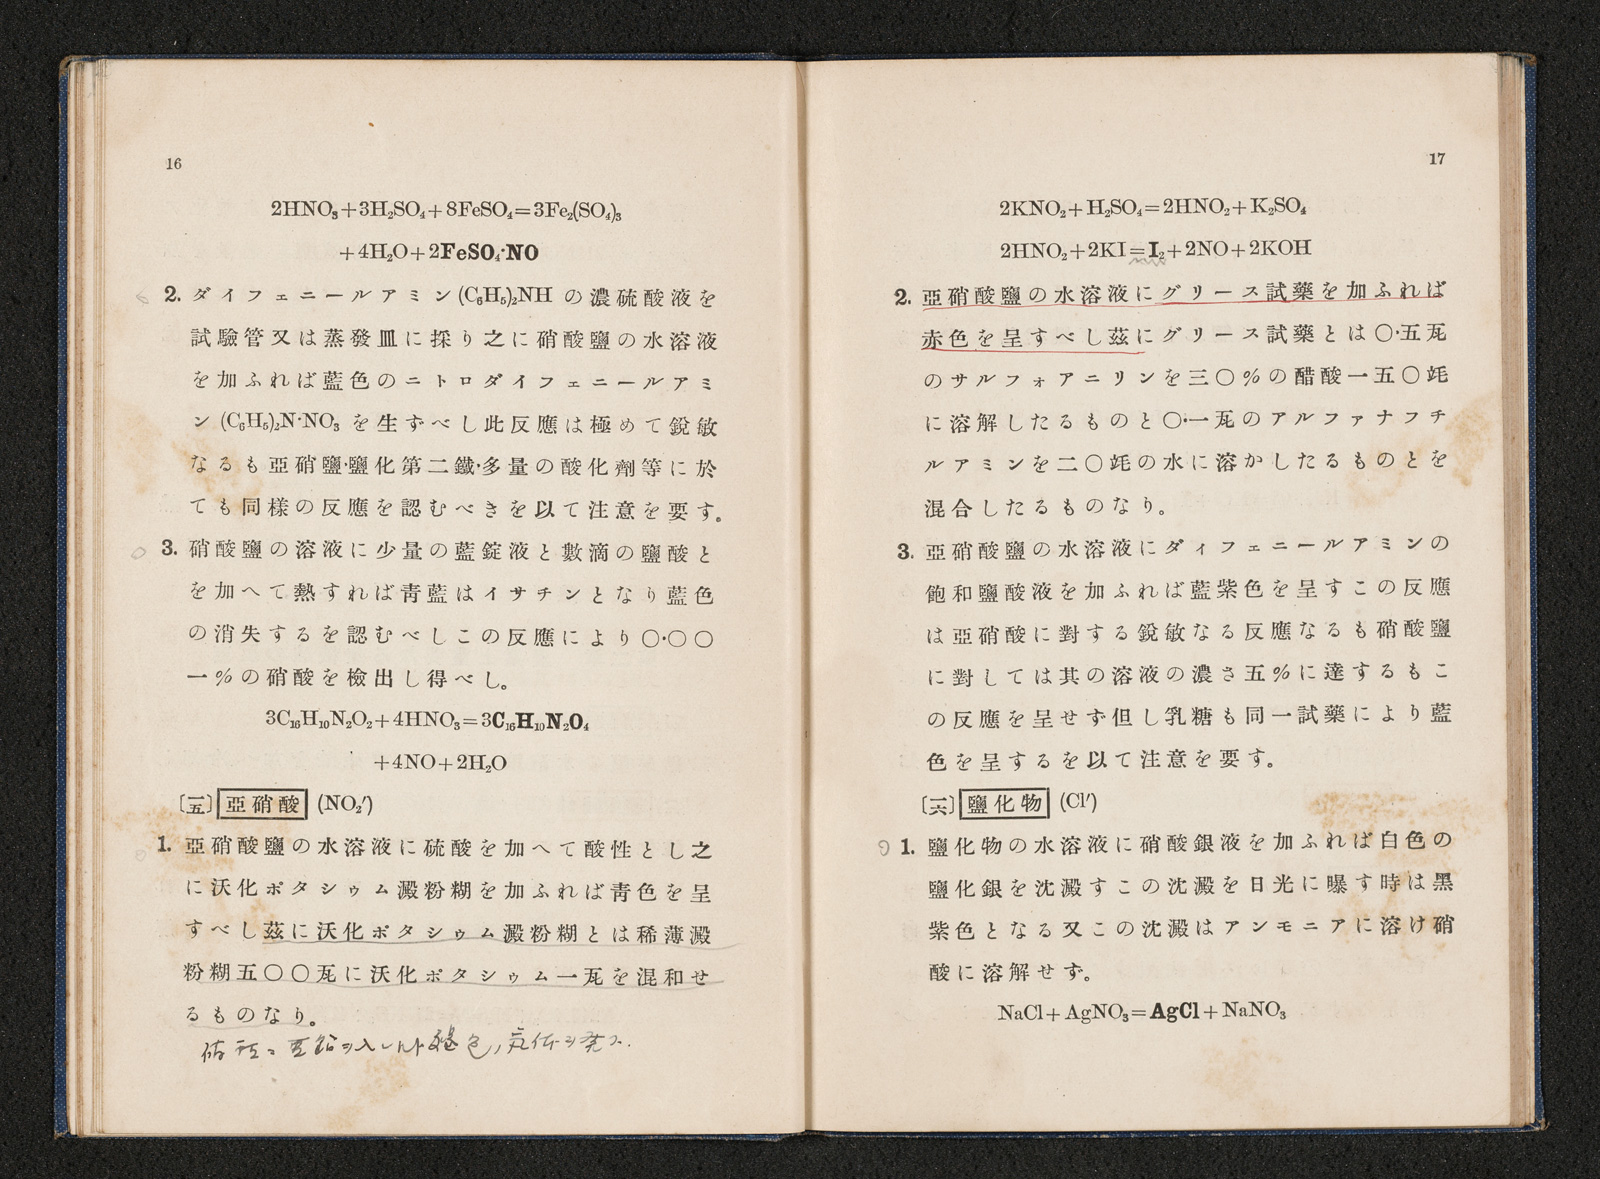 16
2HNO₃+3H₂SO₄+8FeSO₄=3Fe₂(SO₄)₃
+4H₂O+2FeSO₄·NO
2. ダイフェニールアミン(C₆H₅)₂NH の濃硫酸液を
試驗管又は蒸發皿に採り之に硝酸鹽の水溶液
を加ふれば藍色のニトロダイフェニールアミ
ン(C₆H₅)₂N·NO₃ を生ずべし此反應は極めて銳敏
なるも亞硝鹽·鹽化第二鐵·多量の酸化劑等に於
ても同樣の反應を認むべきを以て注意を要す。
3. 硝酸鹽の溶液に少量の藍錠液と數滴の鹽酸と
を加へて熱すれば靑藍はイサチンとなり藍色
の消失するを認むべしこの反應により〇·〇〇
一%の硝酸を檢出し得べし。
3C₁₆H₁₀N₂O₂+4HNO₃=3C₁₆H₁₀N₂O₄
+4NO+2H₂O
〔一五〕亞硝酸 (NO₂′)
1. 亞硝酸鹽の水溶液に硫酸を加へて酸性とし之
に沃化ポタシゥム澱粉糊を加ふれば靑色を呈
すべし茲に沃化ポタシゥム澱粉糊とは稀薄澱
粉糊五〇〇瓦に沃化ポタシゥム一瓦を混和せ
るものなり。
亞鉛ヲ入レ 色,気体ヲ発ス.
17
2KNO₂+H₂SO₄=2HNO₂+K₂SO₄
2HNO₂+2KI=I₂+2NO+2KOH
2. 亞硝酸鹽の水溶液にグリース試藥を加ふれば
赤色を呈すべし茲にグリース試藥とは〇·五瓦
のサルフォアニリンを三〇%の醋酸一五〇竓
に溶解したるものと〇·一瓦のアルファナフチ
ルアミンを二〇竓の水に溶かしたるものとを
混合したるものなり。
3. 亞硝酸鹽の水溶液にダィフェニールアミンの
飽和鹽酸液を加ふれば藍紫色を呈すこの反應
は亞硝酸に對する銳敏なる反應なるも硝酸鹽
に對しては其の溶液の濃さ五%に達するもこ
の反應を呈せず但し乳糖も同一試藥により藍
色を呈するを以て注意を要す。
〔一六〕鹽化物 (Cl′)
1. 鹽化物の水溶液に硝酸銀液を加ふれば白色の
鹽化銀を沈澱すこの沈澱を日光に曝す時は黑
紫色となる又この沈澱はアンモニアに溶け硝
酸に溶解せず。
NaCl+AgNO₃=AgCl+NaNO₃